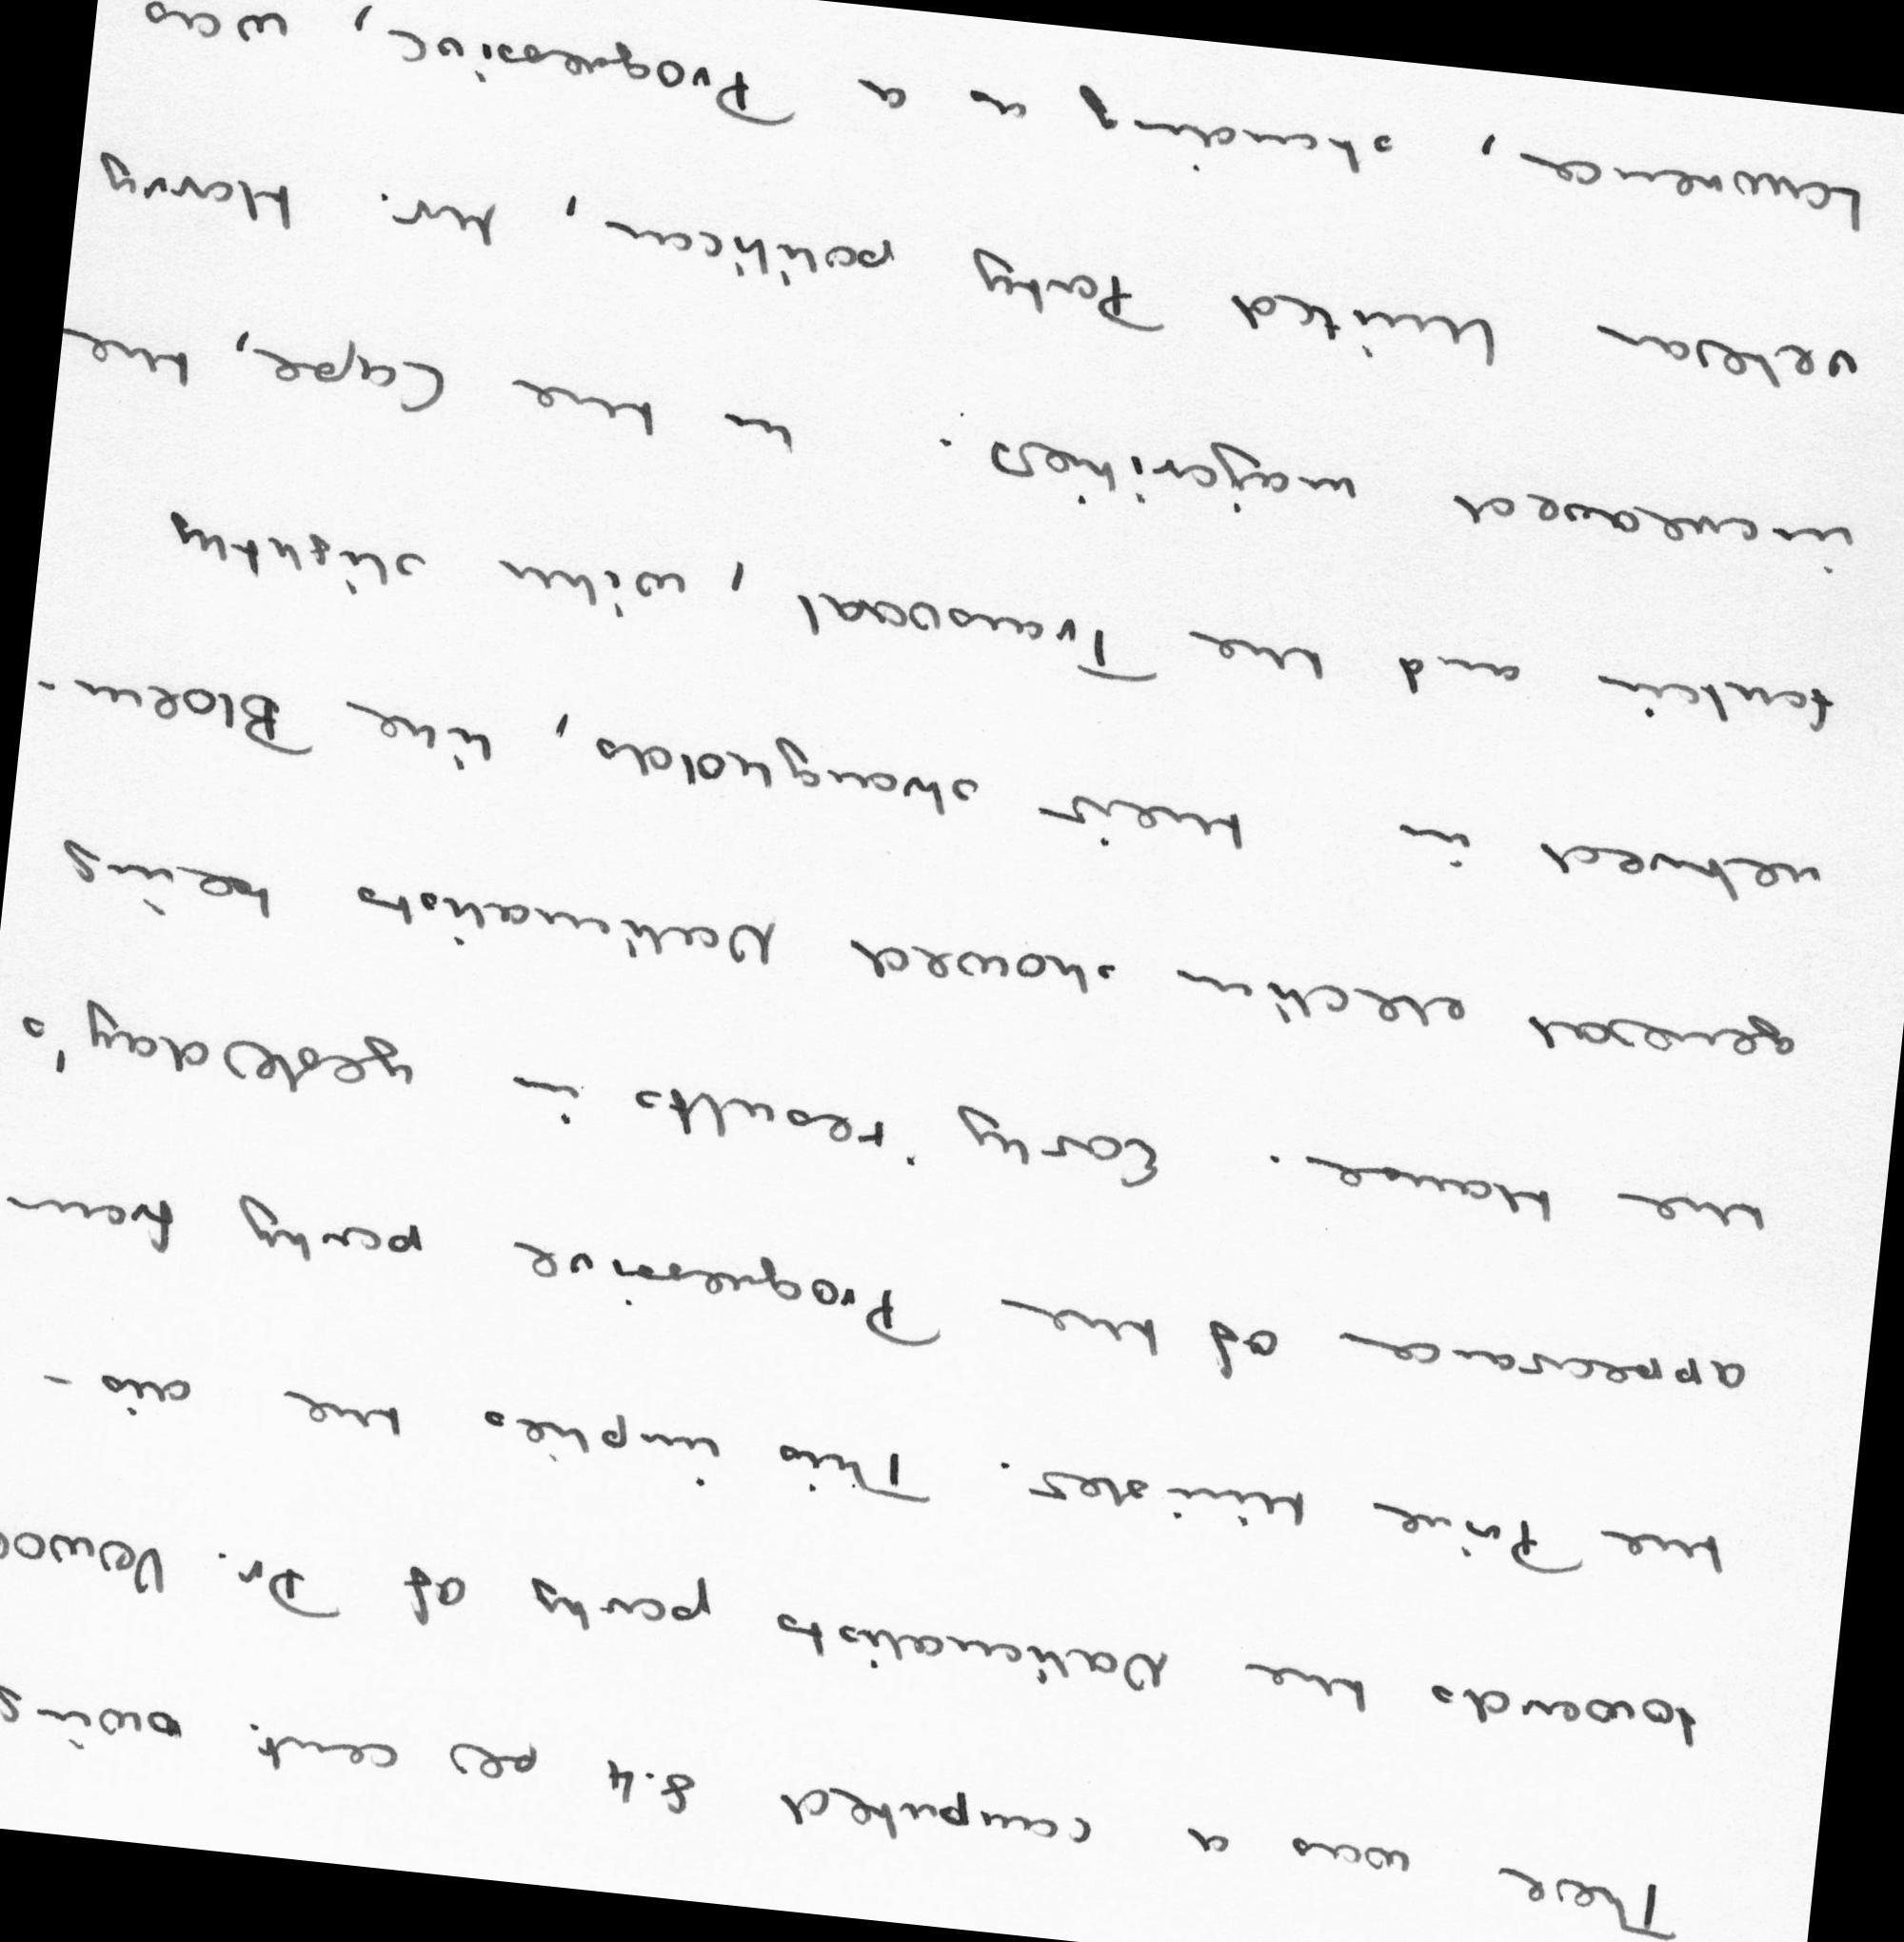 There was a computed 8.4 per cent. swing
towards the Nationalists party of Dr. Verwoe
the Prime Minister. This implies the dis-
appearance of the Progressive party from
the House. Early results in yesterday's
general election showed Nationalists being
returned in their strongholds, like Bloem-
fontein and the Transvaal, with slightly
increased majorities. In the Cape, the
veteran United Party politican, Mr. Harry
Lawrence, standing as a Progressive, was